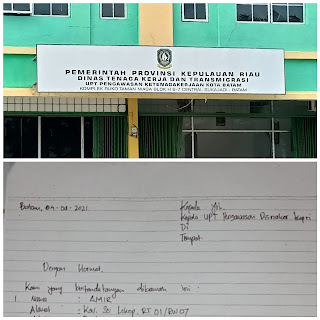 PEMERINTAH PROVINSI KEPULAUAN RIAU
DINAS TENAGA KERJA DAN TRANSMIGRASI
UPT PENGAWASAN KETENAGAKERJAAN KOTA BATAM
KOMPLEK RUKO TAMAN NIAGA BLOK H 6-7 CENTRAL SUKAJADI - BATAM
Batam, 2021
Kepada Yth.
Kepala UPT Pengawasan Disnaker Kepri
Di
Tempat.
Dengan Hormat.
Kami yang bertandatangan dibawah ini :
1. Nama : AMIR
Alamat : Kav. RT 01/RW 07